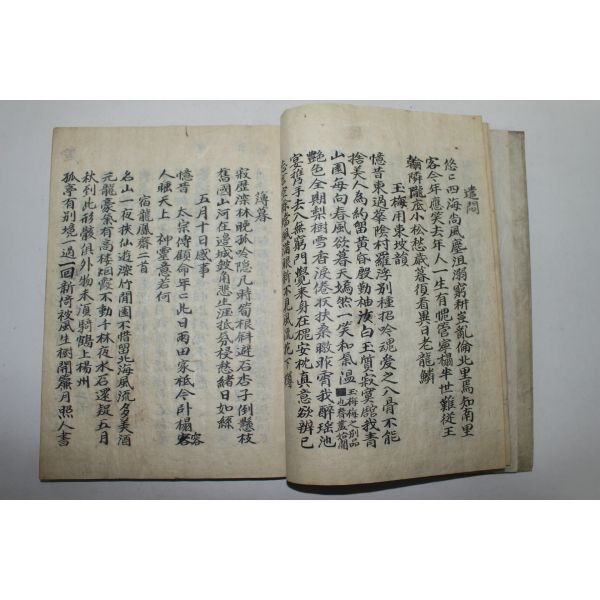 遣悶
悠〻四海尚風塵沮溺窮耕豈亂倫北里焉知南里
客今年應笑去年人一生有
寧榻半世難從王
翰隣隴底小松愁歲暮復看異日老龍鱗
玉梅用東坡韻
憶昔東過華陰村羅浮別種招吟魂愛之入骨不能
捨美人為約留黃昏殷勤袖
白玉質寂寞
我青
山園每向春風欲暮天嫣然一笑和氣溫
玉梅梅之別品
也
艶色全期梨樹雪香淚倦
扶桑暾
霄我醉瑤池
宴携手去入無窮門覺來身在槐安枕真意欲辨已
風滿眼新不見風流花下
薄暮
寂歷深林晚孤吟隱几
荀根斜避石杏子倒懸枝
舊國山河在邊城鼓角悲生涯抵
愁緖日如絲
五月十日感事
憶昔 太宗傳顧命年〻此日雨田家祗今卧榻容
人睡天上 神靈意若何
宿龍鳳齋二首
名山一夜挾仙遊深竹閒園不惜留北海風流多美酒
元龍豪氣有高樓烟霞不動千林夜水石還疑五月
秋到此形骸俱外物未須騎鶴上楊州
孤亭有別境一過一回新倚
風生樹開簾月照人書